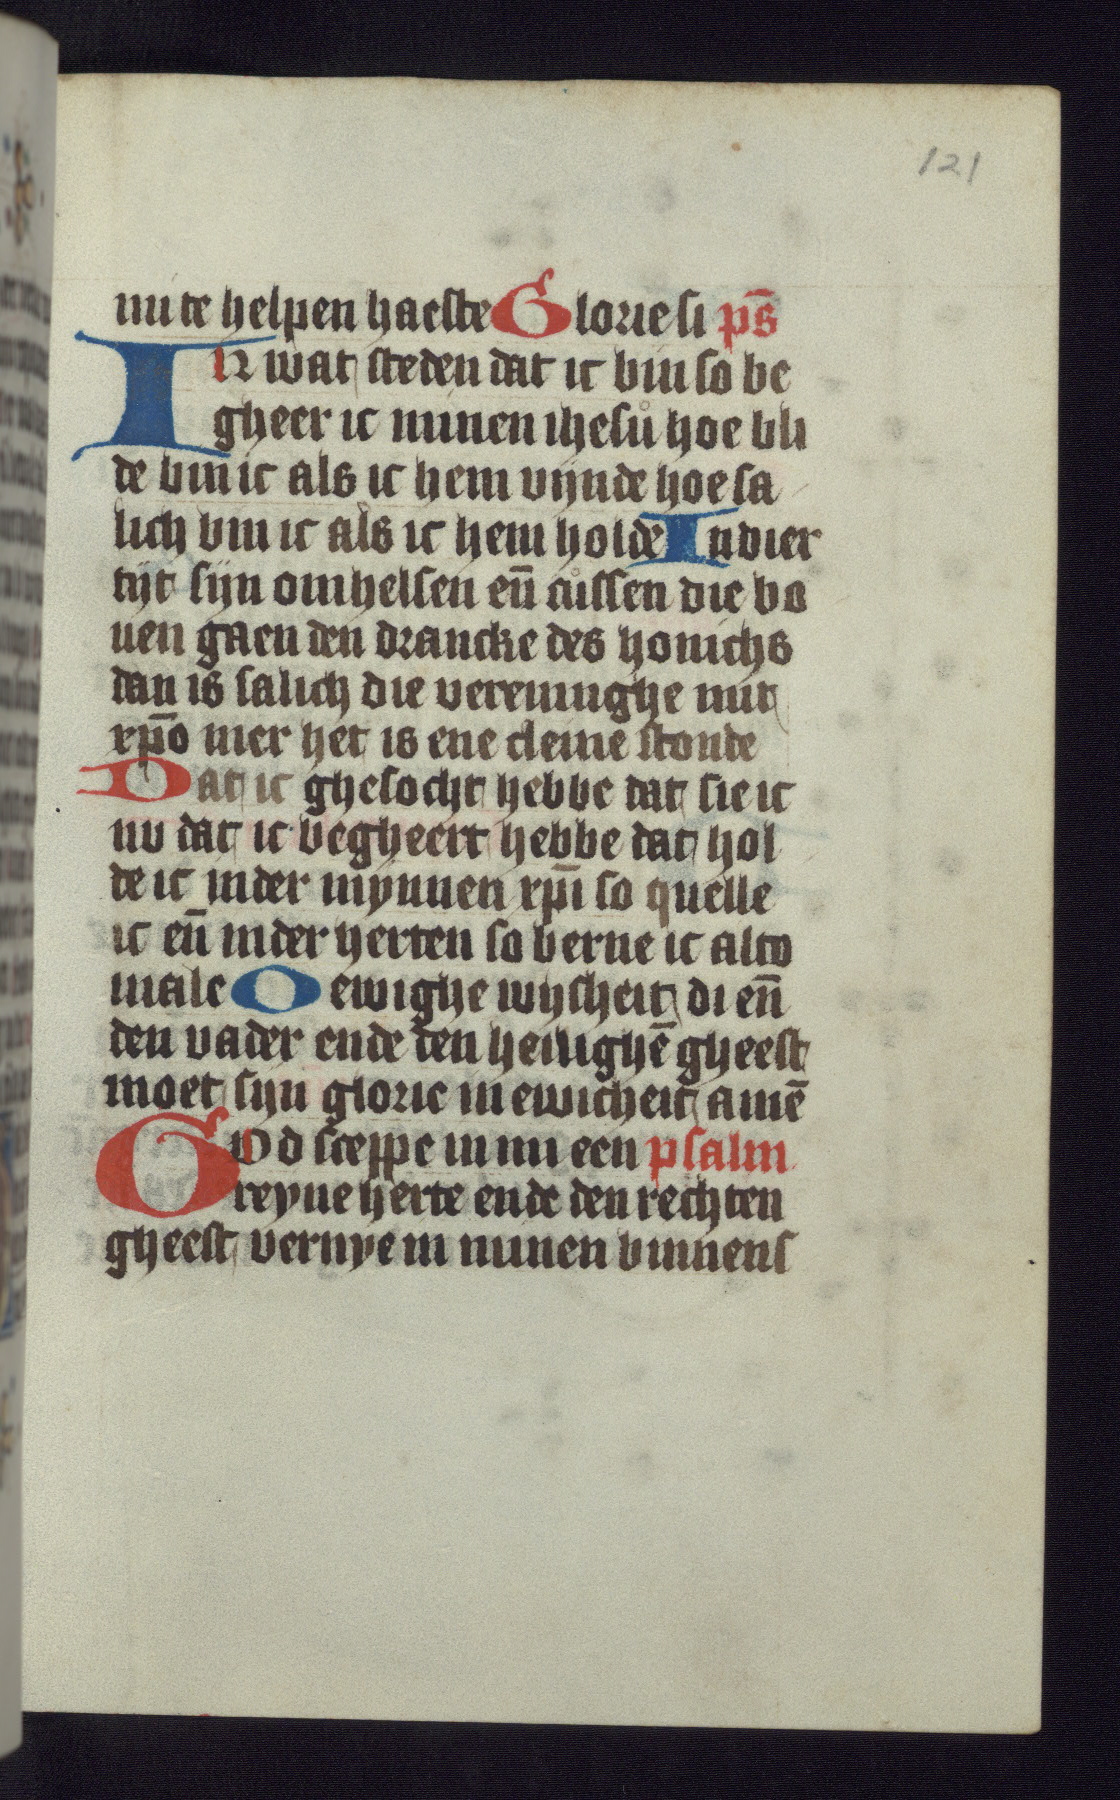 121
mi te helpen haeste Glorie si ps̄
In wat steden dat ic bin so be
gheer ic minen ihesū hoe bli
de bin ic als ic hem vijnde hoe sa
lich bin ic als ic hem holde In dier
tijt sijn omhelsen en̄ cussen die bo
uen gaen den drancke des honichs
dan is salich die vereninghe mit
xp̄o mer het is ene cleine stonde
Dat ic ghesocht hebbe dat sie ic
nv dat ic begheert hebbe dat hol
de ic in der mynnen xp̄i so quelle
ic en̄ in der herten so berne ic alto
male O ewighe wysheit di en̄
den vader ende den heilighē gheest
moet sijn glorie in ewicheit amē
God sceppe in mi een psalm
reyne herte ende den rechten
gheest vernye in minen binnens